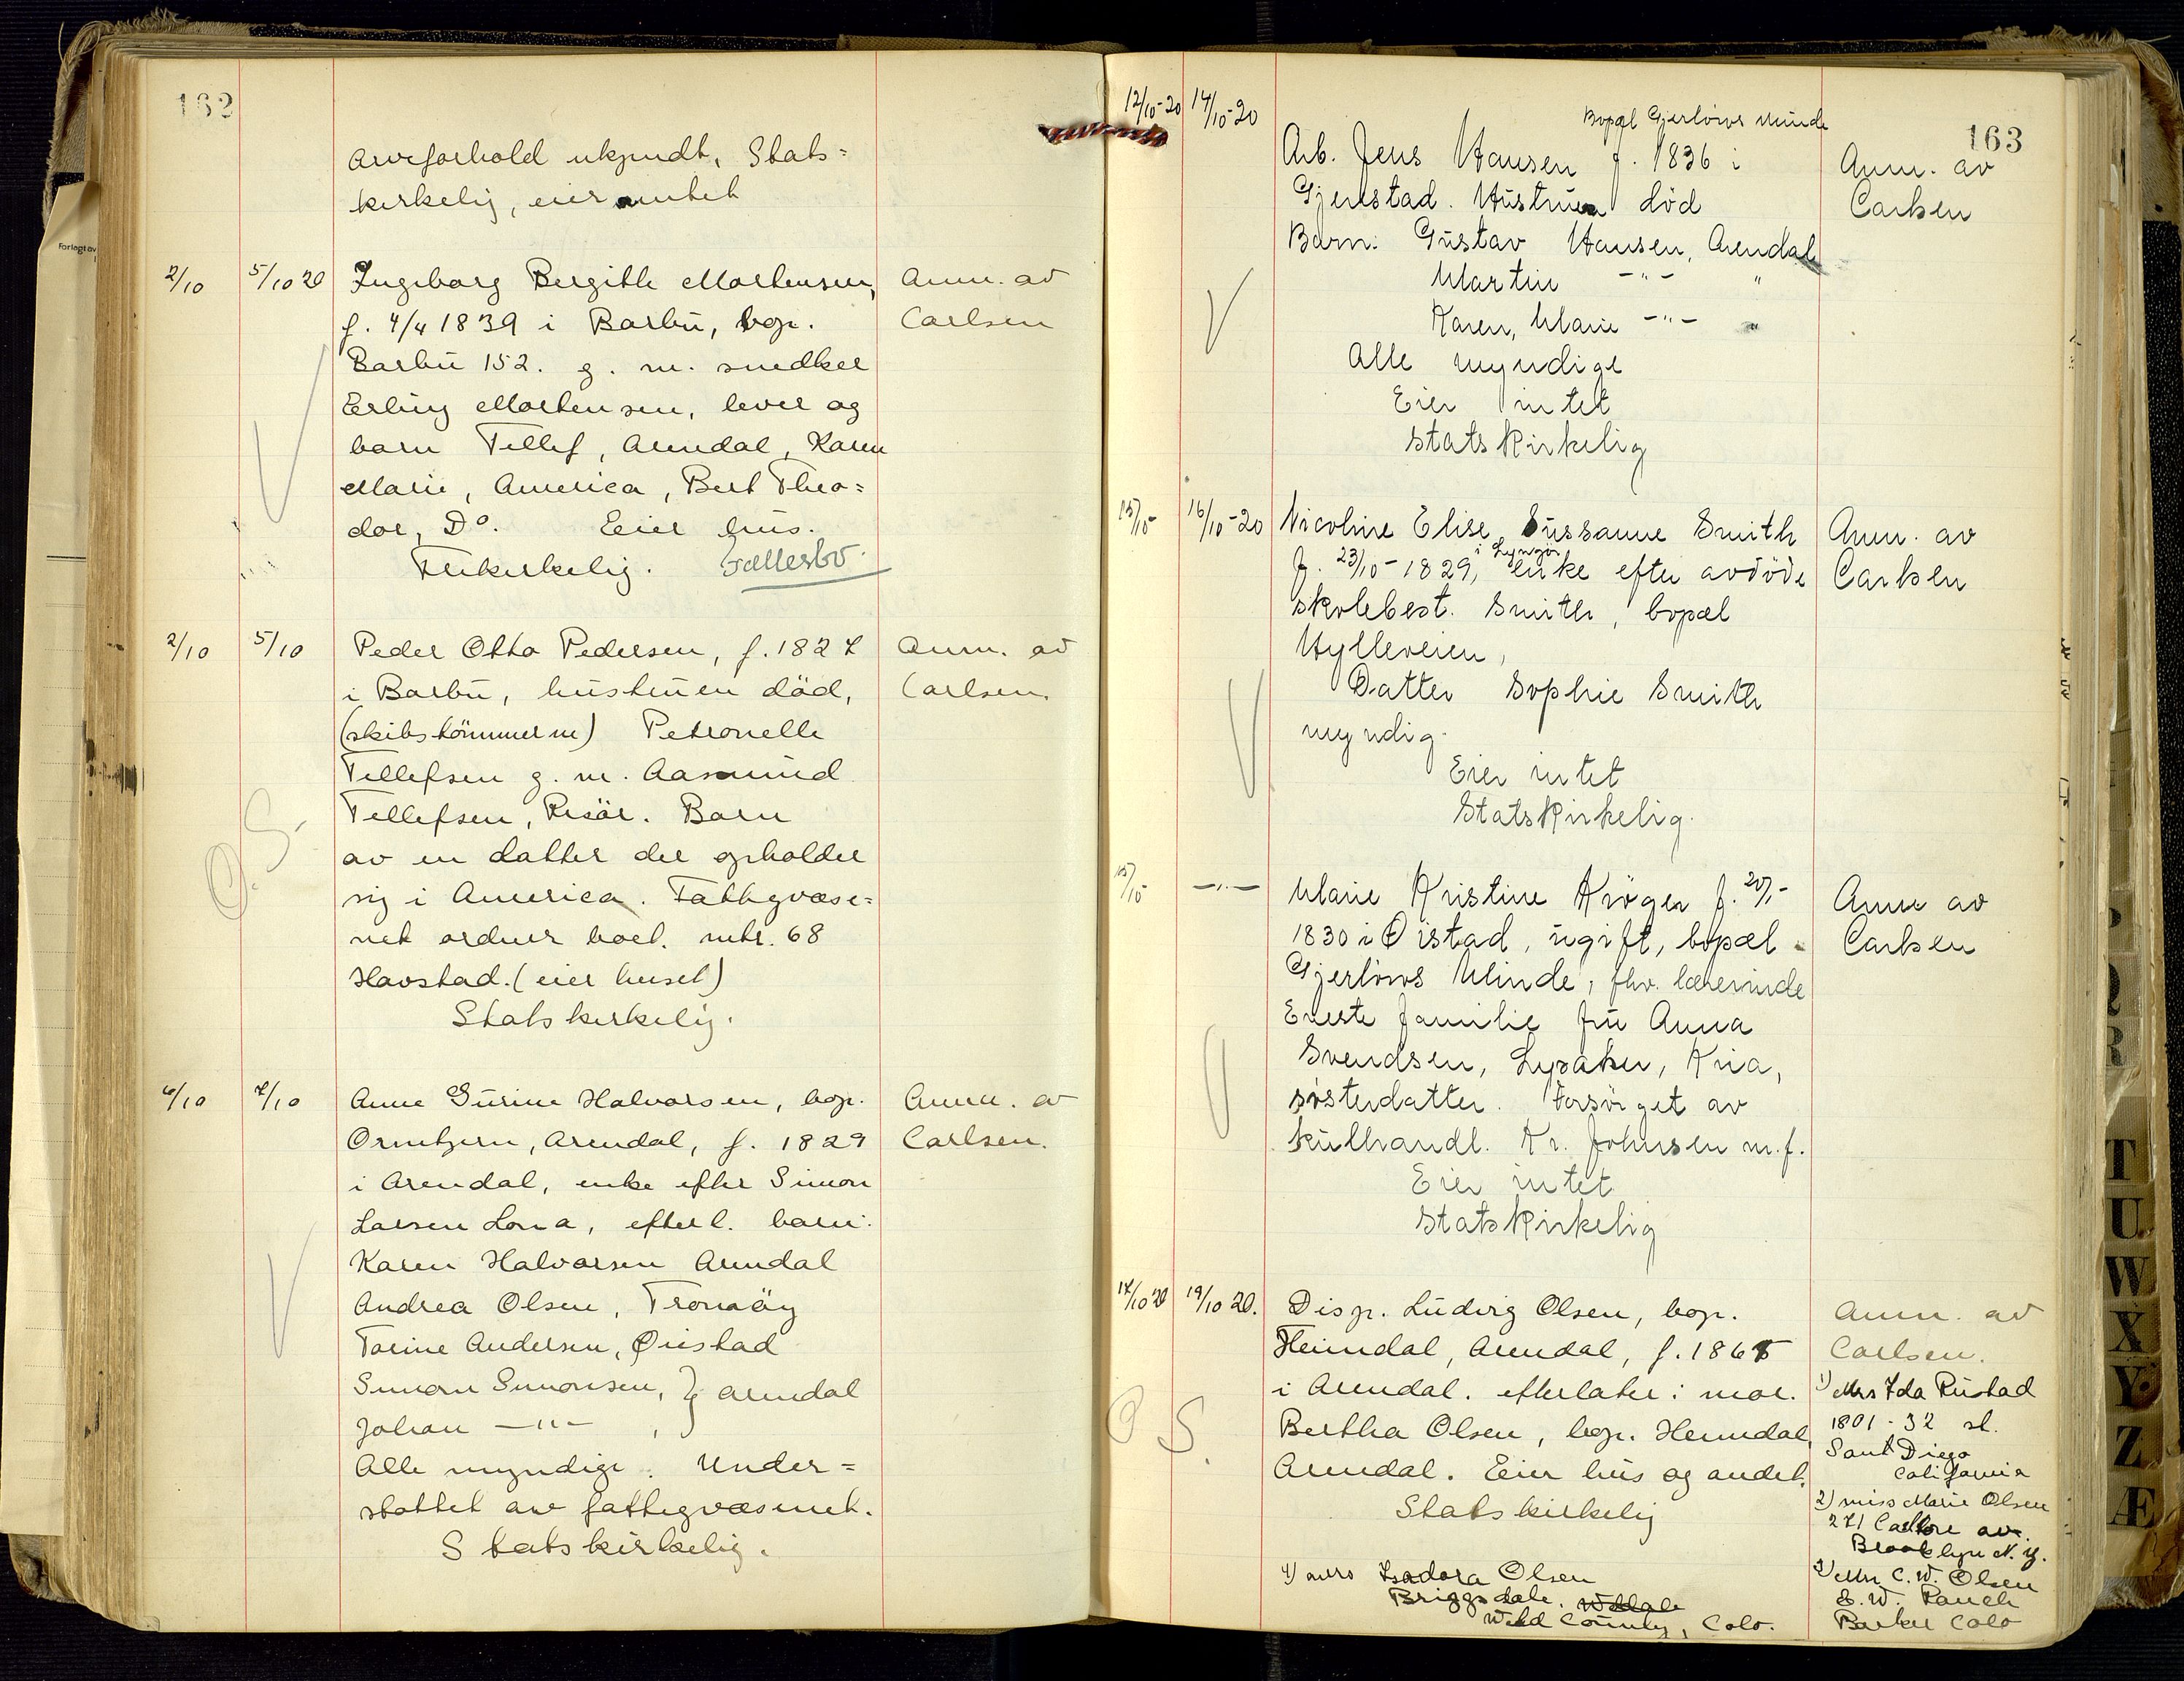 162
Arveforhold ukjendt, Stats=
kirkelig, eier intet
2/10 5/10 20 Ingeborg Bergitte Mortensen, Anm. av
f. 4/4 1839 i Barbu, bop. Carlsen
Barbu 152. g. m. snedker
Erling Mortensen, lever og
barn Tellef, Arendal, Karen
Marie, America, Bert Theo=
dor, Do. Eier hus.
Frikirkelig. Fællesbo
2/10 5/10 Peder Otto Pedersen, f. 1827 Anm. av
i Barbu, hustruen död, Carlsen.
(skibstömmerm) Petronelle
Tellefsen g. m. Aasmund
Tellefsen, Risör. Barn
av en datter der opholder
sig i America. Fattigvæse=
net ordner boet. mtr. 68
Havstad. (eier huset)
Statskirkelig.
O. S.
6/10 7/10 Anne Gurine Halvorsen, bop. Anm. av
Ormtjern, Arendal, f. 1829 Carlsen.
i Arendal, enke efter Simon
Larsen Lona, efterl. barn:
Karen Halvorsen Arendal
Andrea Olsen, Tromöy
Torine Andersen, Øiestad
Simon Simonsen, } Arendal
Johan —"— ,
Alle myndige. Under=
støttet av fattigvæsenet.
Statskirkelig.
163
12/10-20 14/10-20 Bopæl Gjerløws Minde
Arb. Jens Hansen f. 1836 i Anm. av
Gjerestad. Hustruen död Carlsen
Barn: Gustav Hansen, Arendal
Martin —"— "
Karen, Marie —"— "
Alle myndige
Eier intet
Statskirkelig
15/10 16/10-20 Nicoline Elise Sussanne Smith Anm. av
i Lyngør
f. 23/10-1829, enke efter avdöde Carlsen
skolebest. Smith, bopæl
Hylleveien,
Datter Sophie Smith
myndig.
Eier intet
Statskirkelig.
15/10 —"— Marie Kristine Krøger f. 20/-  Anm av
1830 i Öistad, ugift, bopæl Carlsen
Gjerlöws Minde, fhv. lærerinde
Eneste familie fru Anna
Svendsen, Lysaker, Kria,
søsterdatter. Forsörget av
kulhandl. Kr. Johnsen m.f.
Eier intet
Statskirkelig
17/10 20 19/10 20. Disp. Ludvig Olsen, bop. Anm. av
Heimdal, Arendal, f. 1865 Carlsen.
i Arendal. efterlater: mor.
Bertha Olsen, bop. Heimdal,
Arendal. Eier hus og andet.
Statskirkelig
O S.
1) Mrs Ida Rustad
1801 - 32 st.
Sant Diego
California
2) Miss Marie Olsen
271 av.
Brooklyn N. Y.
3) Mr C. W. Olsen
E. W. Ranch
Barker Colo
4) Mrs Isadora Olsen
Briggsdale.
Weld County, Colo.
Forlagt av
Q
R
T
U
W
X
Y
Z
Æ